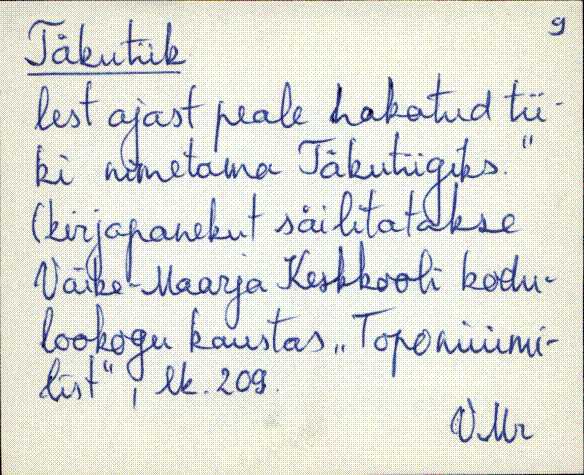 9
Täkutiik
lest ajast peale hakatud tii-
ki nimetama Täkutiigiks."
(kirjapanekut säilitatakse
Väike-Maarja Keskkooli kodu-
lookogu kaustas „Toponüümi-
list", lk. 209.
VMr